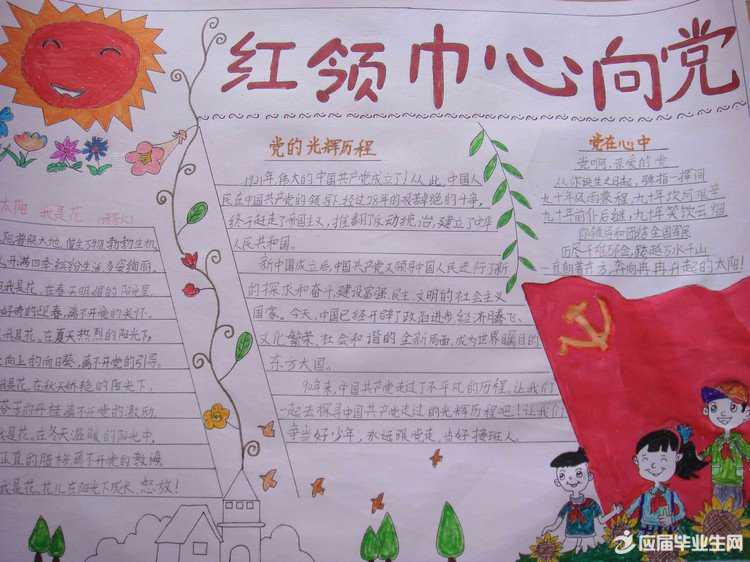 红领巾心向党
党的光辉历程
1921年,伟大的中国共产党成立了!从此,中国人
民在中国共产党的领导下经过28年的艰苦卓绝的斗争,
终于赶走了帝国主义,推翻了反动统治,建立了中华
人民共和国。
新中国成立后,中国共产党又领导中国人民进行了新
的探求和奋斗,建设富强、民主、文明的社会主义
国家。今天,中国已经开辟了政治进步、经济腾飞、
文化繁荣、社会和谐的全新局面,成为世界瞩目的
东方大国。
90年来,中国共产党走过了不平凡的历程,让我们
一起去探寻中国共产党走过的光辉历程吧!让我们
争当好少年,永远跟党走,当好接班人。
党在心中
党啊,亲爱的党
从你诞生之日起,弹指一挥间
九十年风雨兼程,九年坎坷艰辛
九十年前仆后继,九年笑饮云烟
你领导和团结全国军民
历尽千难万险,跨越万水千山
一直朝着东方,奔向冉冉升起的太阳!
太阳 我是花
阳普照大地,催生万物勃勃生机,
我是花,在春天明媚的阳光里
迎春,离不开党的关怀.
我是花,在夏天热烈的阳光下,
向上的向日葵,离不开党的引导。
我是花,在秋天娇艳的阳光下,
的丹桂,离不开党的激励,
我是花,在冬天温暖的阳光中,
正直的腊梅,离不开党的教诲
我是花,花儿在阳光下成长、怒放!
应届毕业生网